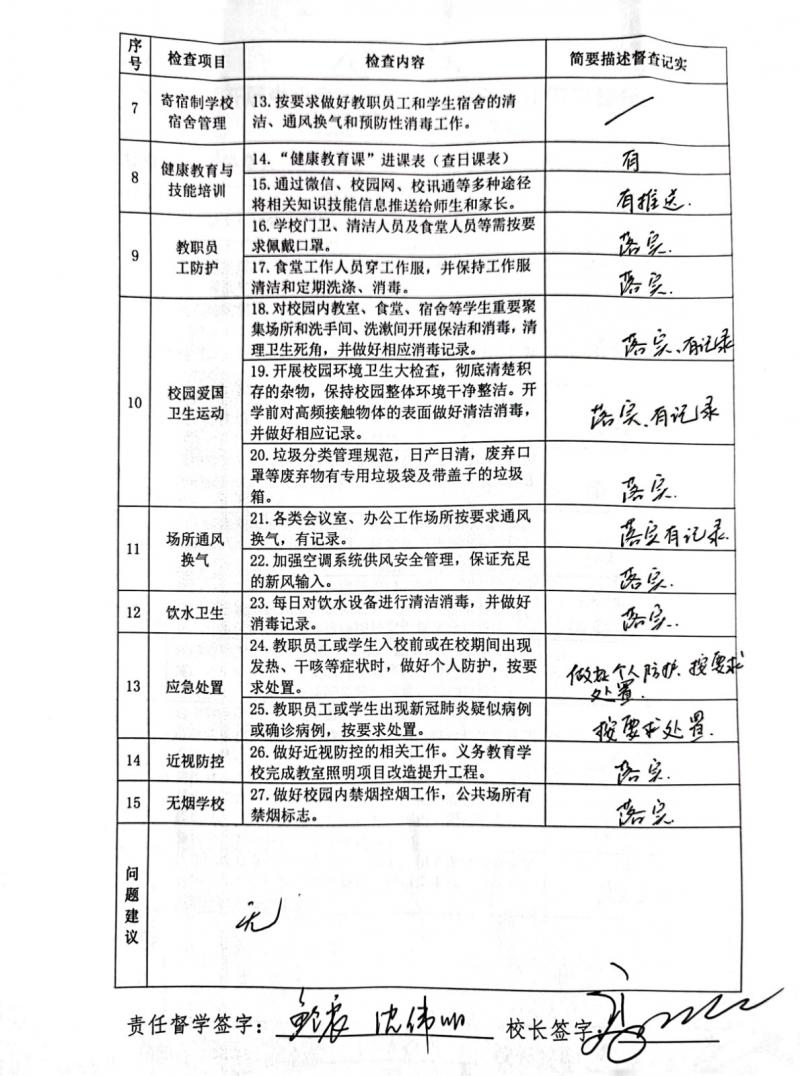 序号 检查项目 检查内容 简要描述督查记实
7 寄宿制学校宿舍管理 13.按要求做好教职员工和学生宿舍的清
洁、通风换气和预防性消毒工作。
8 健康教育与技能培训 14.“健康教育课”进课表（查日课表） 有
15.通过微信、校园网、校讯通等多种途径
将相关知识技能信息推送给师生和家长。 有推送.
9 教职员工防护 16.学校门卫、清洁人员及食堂人员等需按要
求佩戴口罩。 落实.
17.食堂工作人员穿工作服，并保持工作服
清洁和定期洗涤、消毒。 落实.
10 校园爱国卫生运动 18.对校园内教室、食堂、宿舍等学生重要聚
集场所和洗手间、洗漱间开展保洁和消毒，清
理卫生死角，并做好相应消毒记录。 落实、有记录
19.开展校园环境卫生大检查，彻底清楚积
存的杂物，保持校园整体环境干净整洁。开
学前对高频接触物体的表面做好清洁消毒，
并做好相应记录。 落实、有记录
20.垃圾分类管理规范，日产日清，废弃口
罩等废弃物有专用垃圾袋及带盖子的垃圾
箱。 落实.
11 场所通风换气 21.各类会议室、办公工作场所按要求通风
换气，有记录。 落实有记录.
22.加强空调系统供风安全管理，保证充足
的新风输入。 落实.
12 饮水卫生 23.每日对饮水设备进行清洁消毒，并做好
消毒记录。 落实.
13 应急处置 24.教职员工或学生入校前或在校期间出现
发热、干咳等症状时，做好个人防护，按要
求处置。 做好个人防护、按要求
处置.
25.教职员工或学生出现新冠肺炎疑似病例
或确诊病例，按要求处置。 按要求处置.
14 近视防控 26.做好近视防控的相关工作。义务教育学
校完成教室照明项目改造提升工程。 落实.
15 无烟学校 27.做好校园内禁烟控烟工作，公共场所有
禁烟标志。 落实.
问题建议 无
责任督学签字： 沈伟明 校长签字：